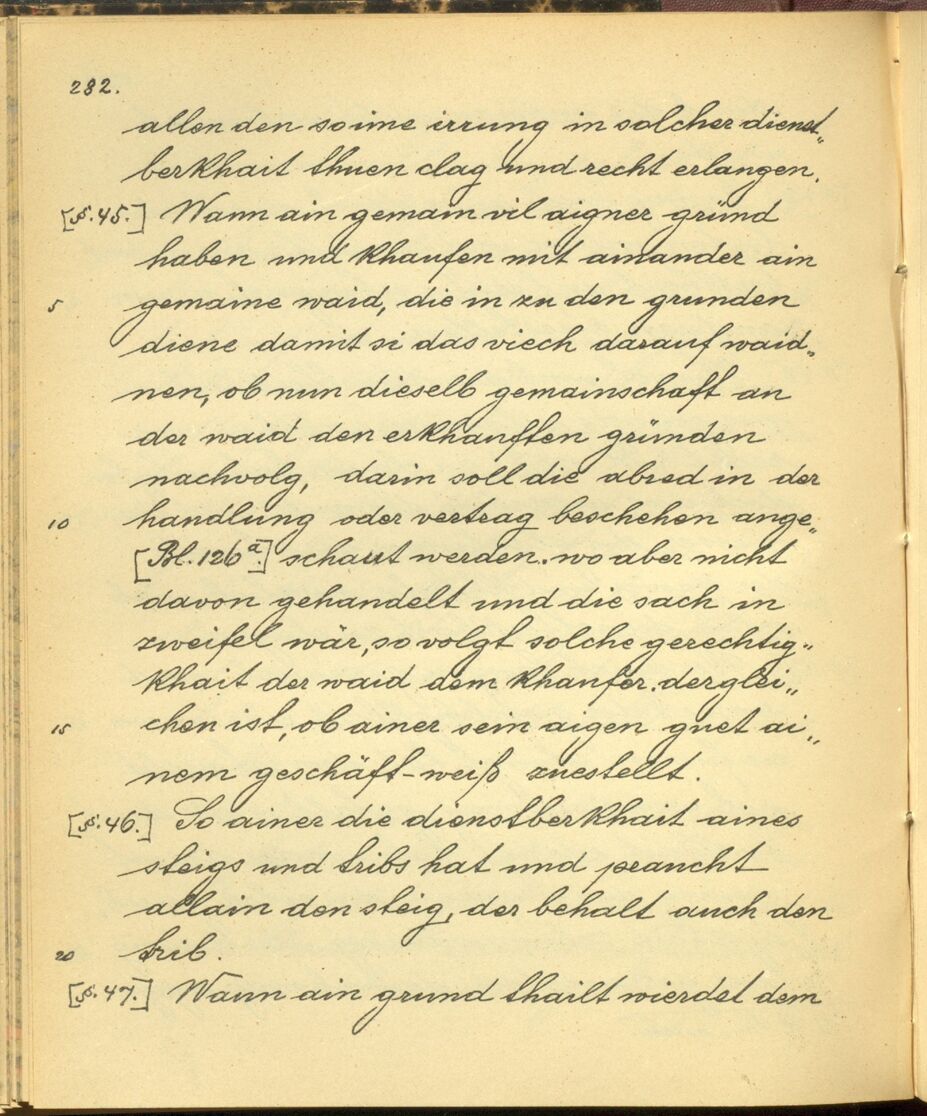 282.
allen den so ime irrung in solcher dienst„
berkhait thuen clag und recht erlangen.
[§. 45.] Wann ain gemain vil aigner gründ
haben und khaufen mit ainander ain
5 gemaine waid, die in zu den grunden
diene damit si das viech darauf waid„
nen, ob nun dieselb gemainschaft an
der waid den erkhaufften gründen
nachvolg, darin soll die abred in der
10 handlung oder vertrag beschehen ange„
[Bl. 126a.] schaut werden. wo aber nicht
davon gehandelt und die sach in
zweifel wär, so volgt solche gerechtig„
khait der waid dem khaufer. derglei„
15 chen ist, ob ainer sein aigen guet ai„
nem geschäft-weiß zuestellt.
[§. 46.] So ainer die dienstberkhait aines
steigs und tribs hat und praucht
allain den steig, der behalt auch den
20 trib.
[§. 47.] Wann ain grund thailt wierdet dem